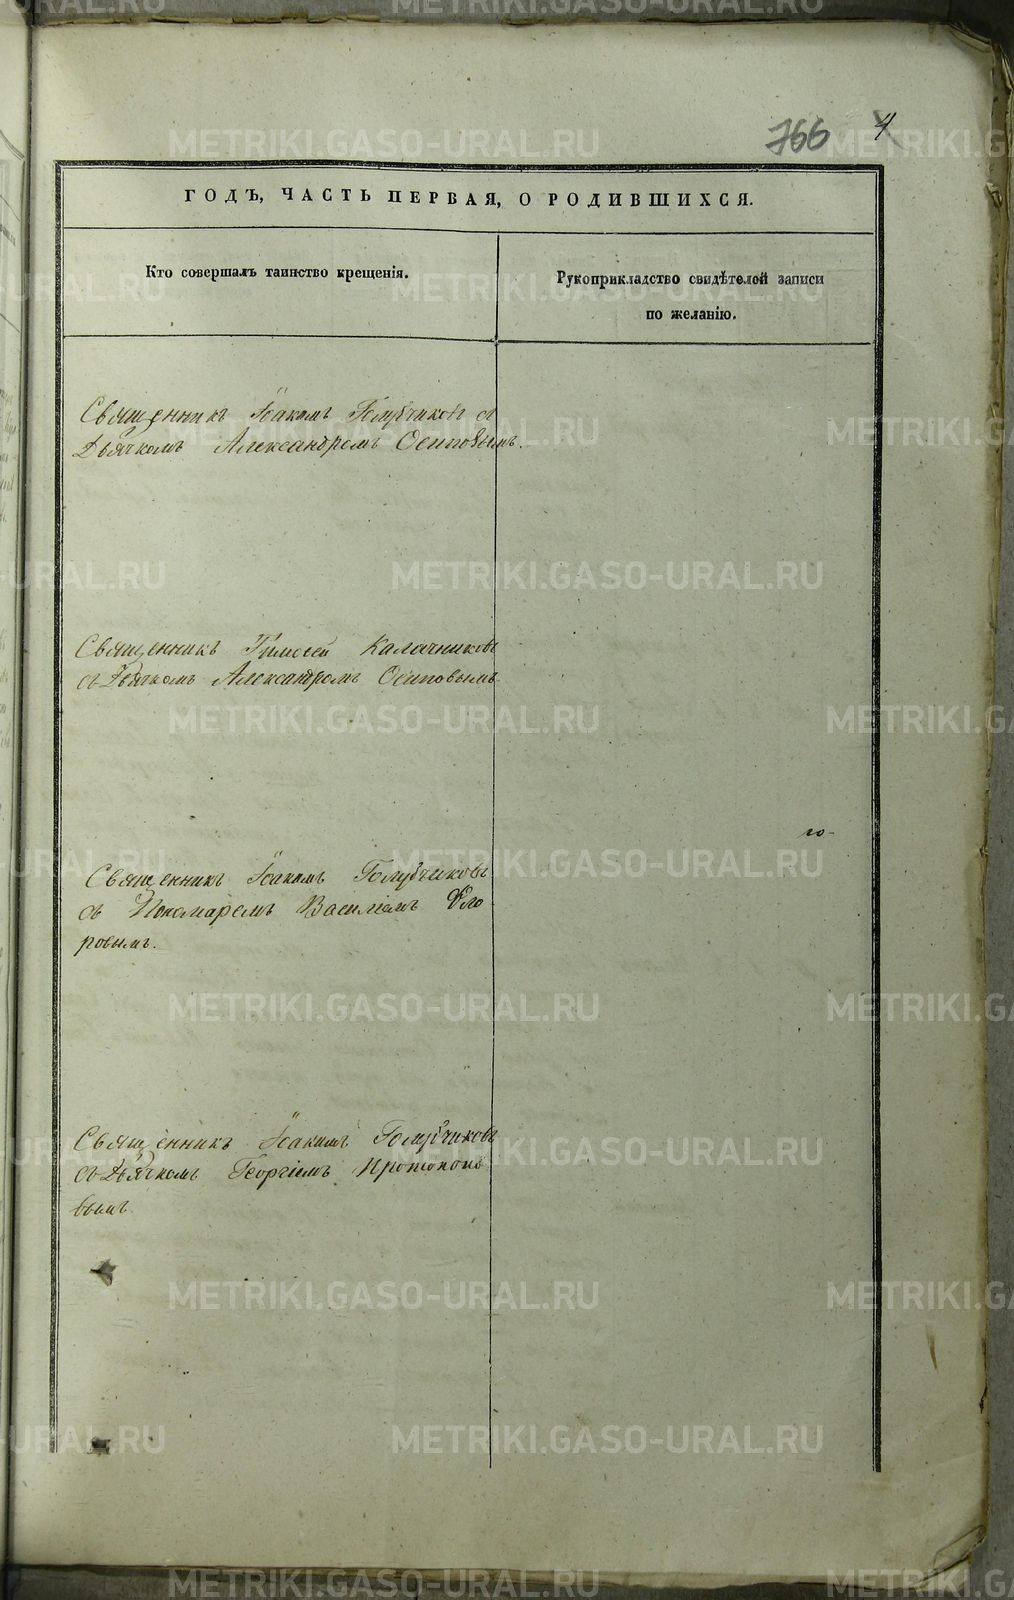 766 4
ГОДЪ, ЧАСТЬ ПЕРВАЯ, О РОДИВШИХСЯ.
Кто совершалъ таинство крещенія.
Рукоприкладство свидѣтелей записи
по желанію.
Священникъ Іоакимъ Голубчиковъ съ
Дьячкомъ Александромъ Осиповымъ.
Священникъ Тимоѳей Калачниковъ
съ Дьячкомъ Александромъ Осиповымъ
го-
Священникъ Іоакимъ Голубчиковъ
съ Пономаремъ Василіемъ Фло-
ровымъ.
Священникъ Іоакимъ Голубчиковъ
съ Дьячкомъ Георгіемъ Протопопо
вымъ
METRIKI.GASO-URAL.RU